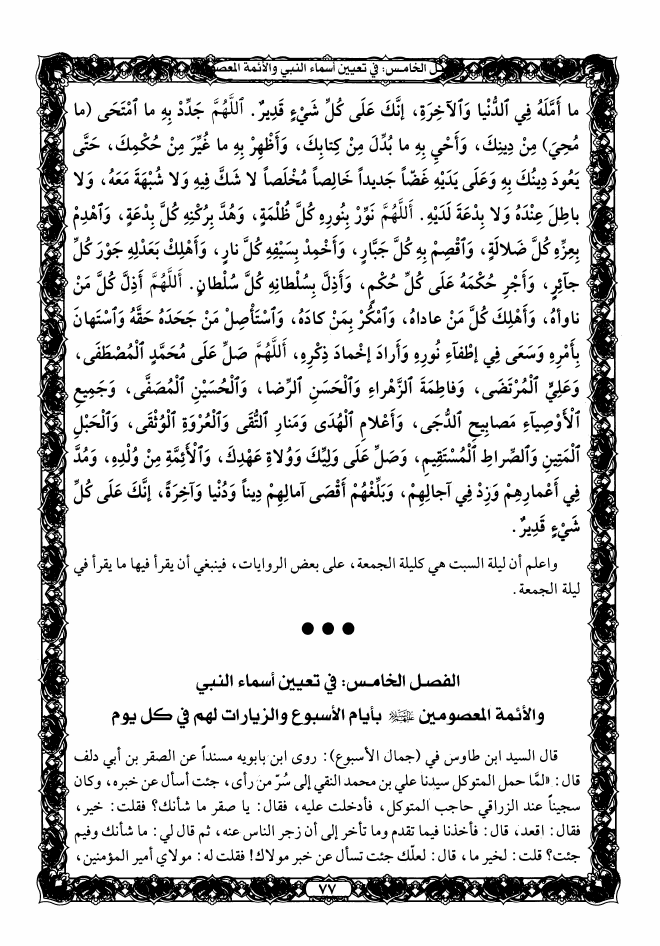 ـل الخامـس: في تعيين أسماء النبي والأئمة المعصو
ما أَمَّلَهُ فِي ٱلدُّنْيا وَٱلآخِرَةِ، إِنَّكَ عَلَى كُلِّ شَيْءٍ قَدِيرٌ. ٱللَّهُمَّ جَدِّدْ بِهِ ما ٱمْتَحَى (ما
مُحِيَ) مِنْ دِينِكَ، وَأَحْيِ بِهِ ما بُدِّلَ مِنْ كِتابِكَ، وَأَظْهِرْ بِهِ ما غُيِّرَ مِنْ حُكْمِكَ، حَتَّى
يَعُودَ دِينُكَ بِهِ وَعَلَى يَدَيْهِ غَضّاً جَدِيداً خَالِصاً مُخْلَصاً لا شَكَّ فِيهِ وَلا شُبْهَةَ مَعَهُ، وَلا
باطِلَ عِنْدَهُ وَلا بِدْعَةَ لَدَيْهِ. ٱللَّهُمَّ نَوِّرْ بِنُورِهِ كُلَّ ظُلْمَةٍ، وَهُدَّ بِرُكْنِهِ كُلَّ بِدْعَةٍ، وَٱهْدِمْ
بِعِزِّهِ كُلَّ ضَلالَةٍ، وَٱقْصِمْ بِهِ كُلَّ جَبَّارٍ، وَأَخْمِدْ بِسَيْفِهِ كُلَّ نارٍ، وَأَهْلِكْ بِعَدْلِهِ جَوْرَ كُلِّ
جآئِرٍ، وَأَجْرِ حُكْمَهُ عَلَى كُلِّ حُكْمٍ، وَأَذِلَّ بِسُلْطانِهِ كُلَّ سُلْطانٍ. ٱللَّهُمَّ أَذِلَّ كُلَّ مَنْ
ناوأهُ، وَأَهْلِكَ كُلَّ مَنْ عاداهُ، وَٱمْكُرْ بِمَنْ كادَهُ، وَٱسْتَأْصِلْ مَنْ جَحَدَهُ حَقَّهُ وَٱسْتَهانَ
بِأَمْرِهِ وَسَعَى فِي إِطْفآءِ نُورِهِ وَأَرادَ إِخْمادَ ذِكْرِهِ، ٱللَّهُمَّ صَلِّ عَلَى مُحَمَّدٍ ٱلْمُصْطَفَى،
وَعَلِيٍّ ٱلْمُرْتَضَى، وَفاطِمَةَ ٱلزَّهْراءِ وَٱلْحَسَنِ ٱلرِّضا، وَٱلْحُسَيْنِ ٱلْمُصَفَّى، وَجَمِيعِ
ٱلْأَوْصِيآءِ مَصابِيحِ ٱلدُّجَى، وَأَعْلامِ ٱلْهُدَى وَمَنارِ ٱلتُّقَى وَٱلْعُرْوَةِ ٱلْوُثْقَى، وَٱلْحَبْلِ
ٱلْمَتِينِ وَٱلصِّراطِ ٱلْمُسْتَقِيمِ، وَصَلِّ عَلَى وَلِيِّكَ وَوُلاةِ عَهْدِكَ، وَٱلْأَئِمَّةِ مِنْ وُلْدِهِ، وَمُدَّ
فِي أَعْمارِهِمْ وَزِدْ فِي آجالِهِمْ، وَبَلِّغْهُمْ أَقْصَى آمالِهِمْ دِيناً وَدُنْيا وَآخِرَةً، إِنَّكَ عَلَى كُلِّ
شَيْءٍ قَدِيرٌ.
واعلم أن ليلة السبت هي كليلة الجمعة، على بعض الروايات، فينبغي أن يقرأ فيها ما يقرأ في
ليلة الجمعة.
● ● ●
الفصل الخامـس: في تعيين أسماء النبي
والأئمة المعصومين عليهم السلام بأيام الأسبوع والزيارات لهم في كل يوم
قال السيد ابن طاوس في (جمال الأسبوع): روى ابن بابويه مسنداً عن الصقر بن أبي دلف
قال: «لمَّا حمل المتوكل سيدنا علي بن محمد النقي إلى سُرّ من رأى، جئت أسأل عن خبره، وكان
سجيناً عند الزراقي حاجب المتوكل، فأدخلت عليه، فقال: يا صقر ما شأنك؟ فقلت: خير،
فقال: اقعد، قال: فأخذنا فيما تقدم وما تأخر إلى أن زجر الناس عنه، ثم قال لي: ما شأنك وفيم
جئت؟ قلت: لخير ما، قال: لعلّك جئت تسأل عن خبر مولاك! فقلت له: مولاي أمير المؤمنين،
٧٧